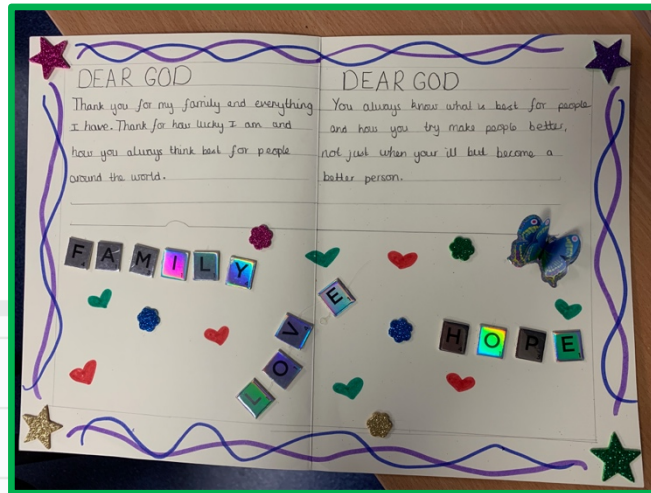 DEAR GOD
Thank you for my family and everything
I have. Thank for how lucky I am and
how you always think best for people
around the world.
DEAR GOD
You always know what is best for people
and how you try make people better,
not just when your ill but become a
better person.
FAMILY
LOVE
HOPE